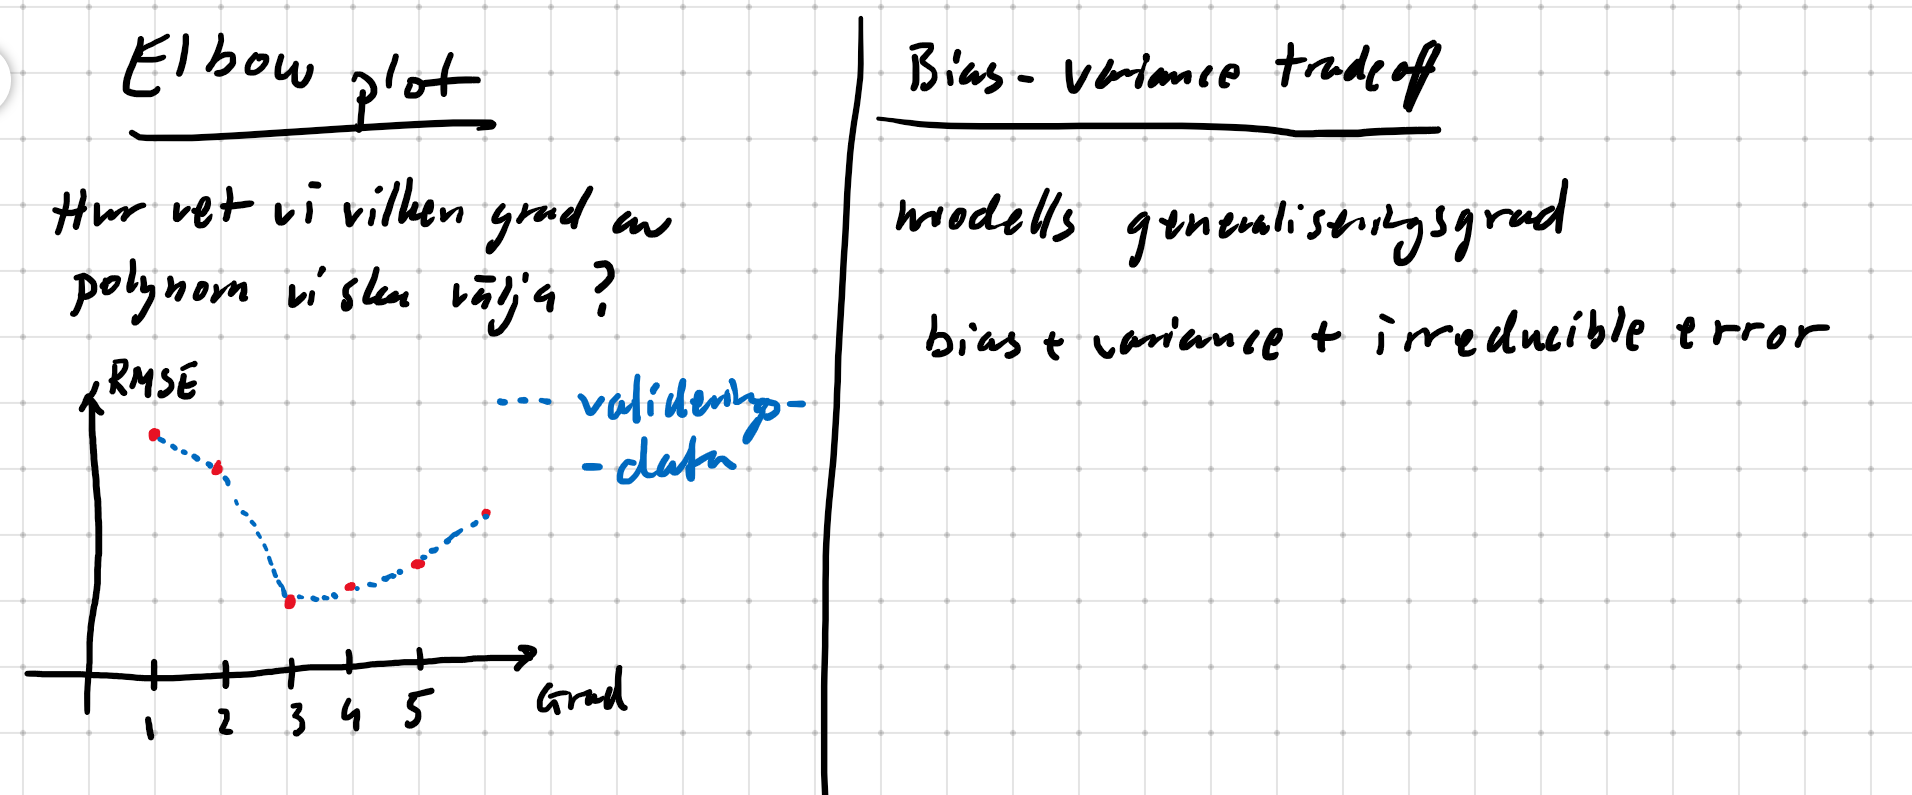 Elbow plot
Hur vet vi vilken grad av
polynom vi ska välja?
RMSE
--- validerings-
- data
1 2 3 4 5
Grad
Bias - variance tradeoff
modells generaliseringsgrad
bias + variance + irreducible error